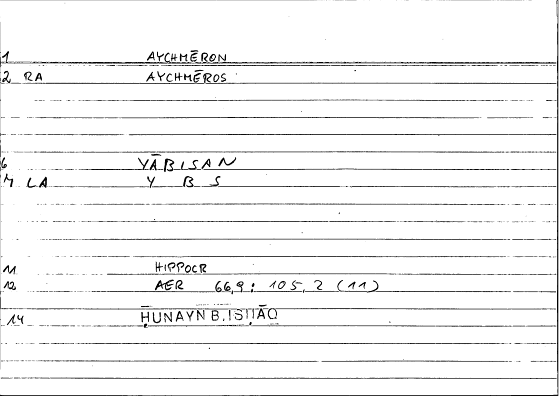 1 AYCHMĒRON
2 RA AYCHMĒROS
6 YĀBISAN
7 LA Y B S
11 HIPPOCR
12 AER 66,9 : 105,2 (11)
14 ḤUNAYN B. ISḤĀQ